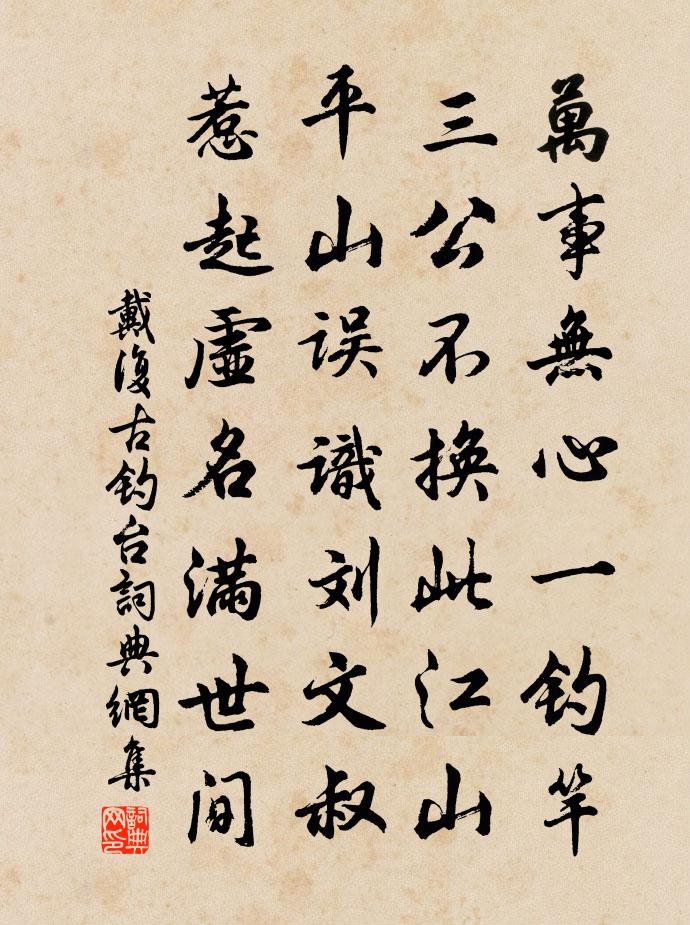 萬事無心一钓竿
三公不换此江山
平山误識刘文叔
惹起虛名满世间
戴復古钓台詞典網集
詞典网印